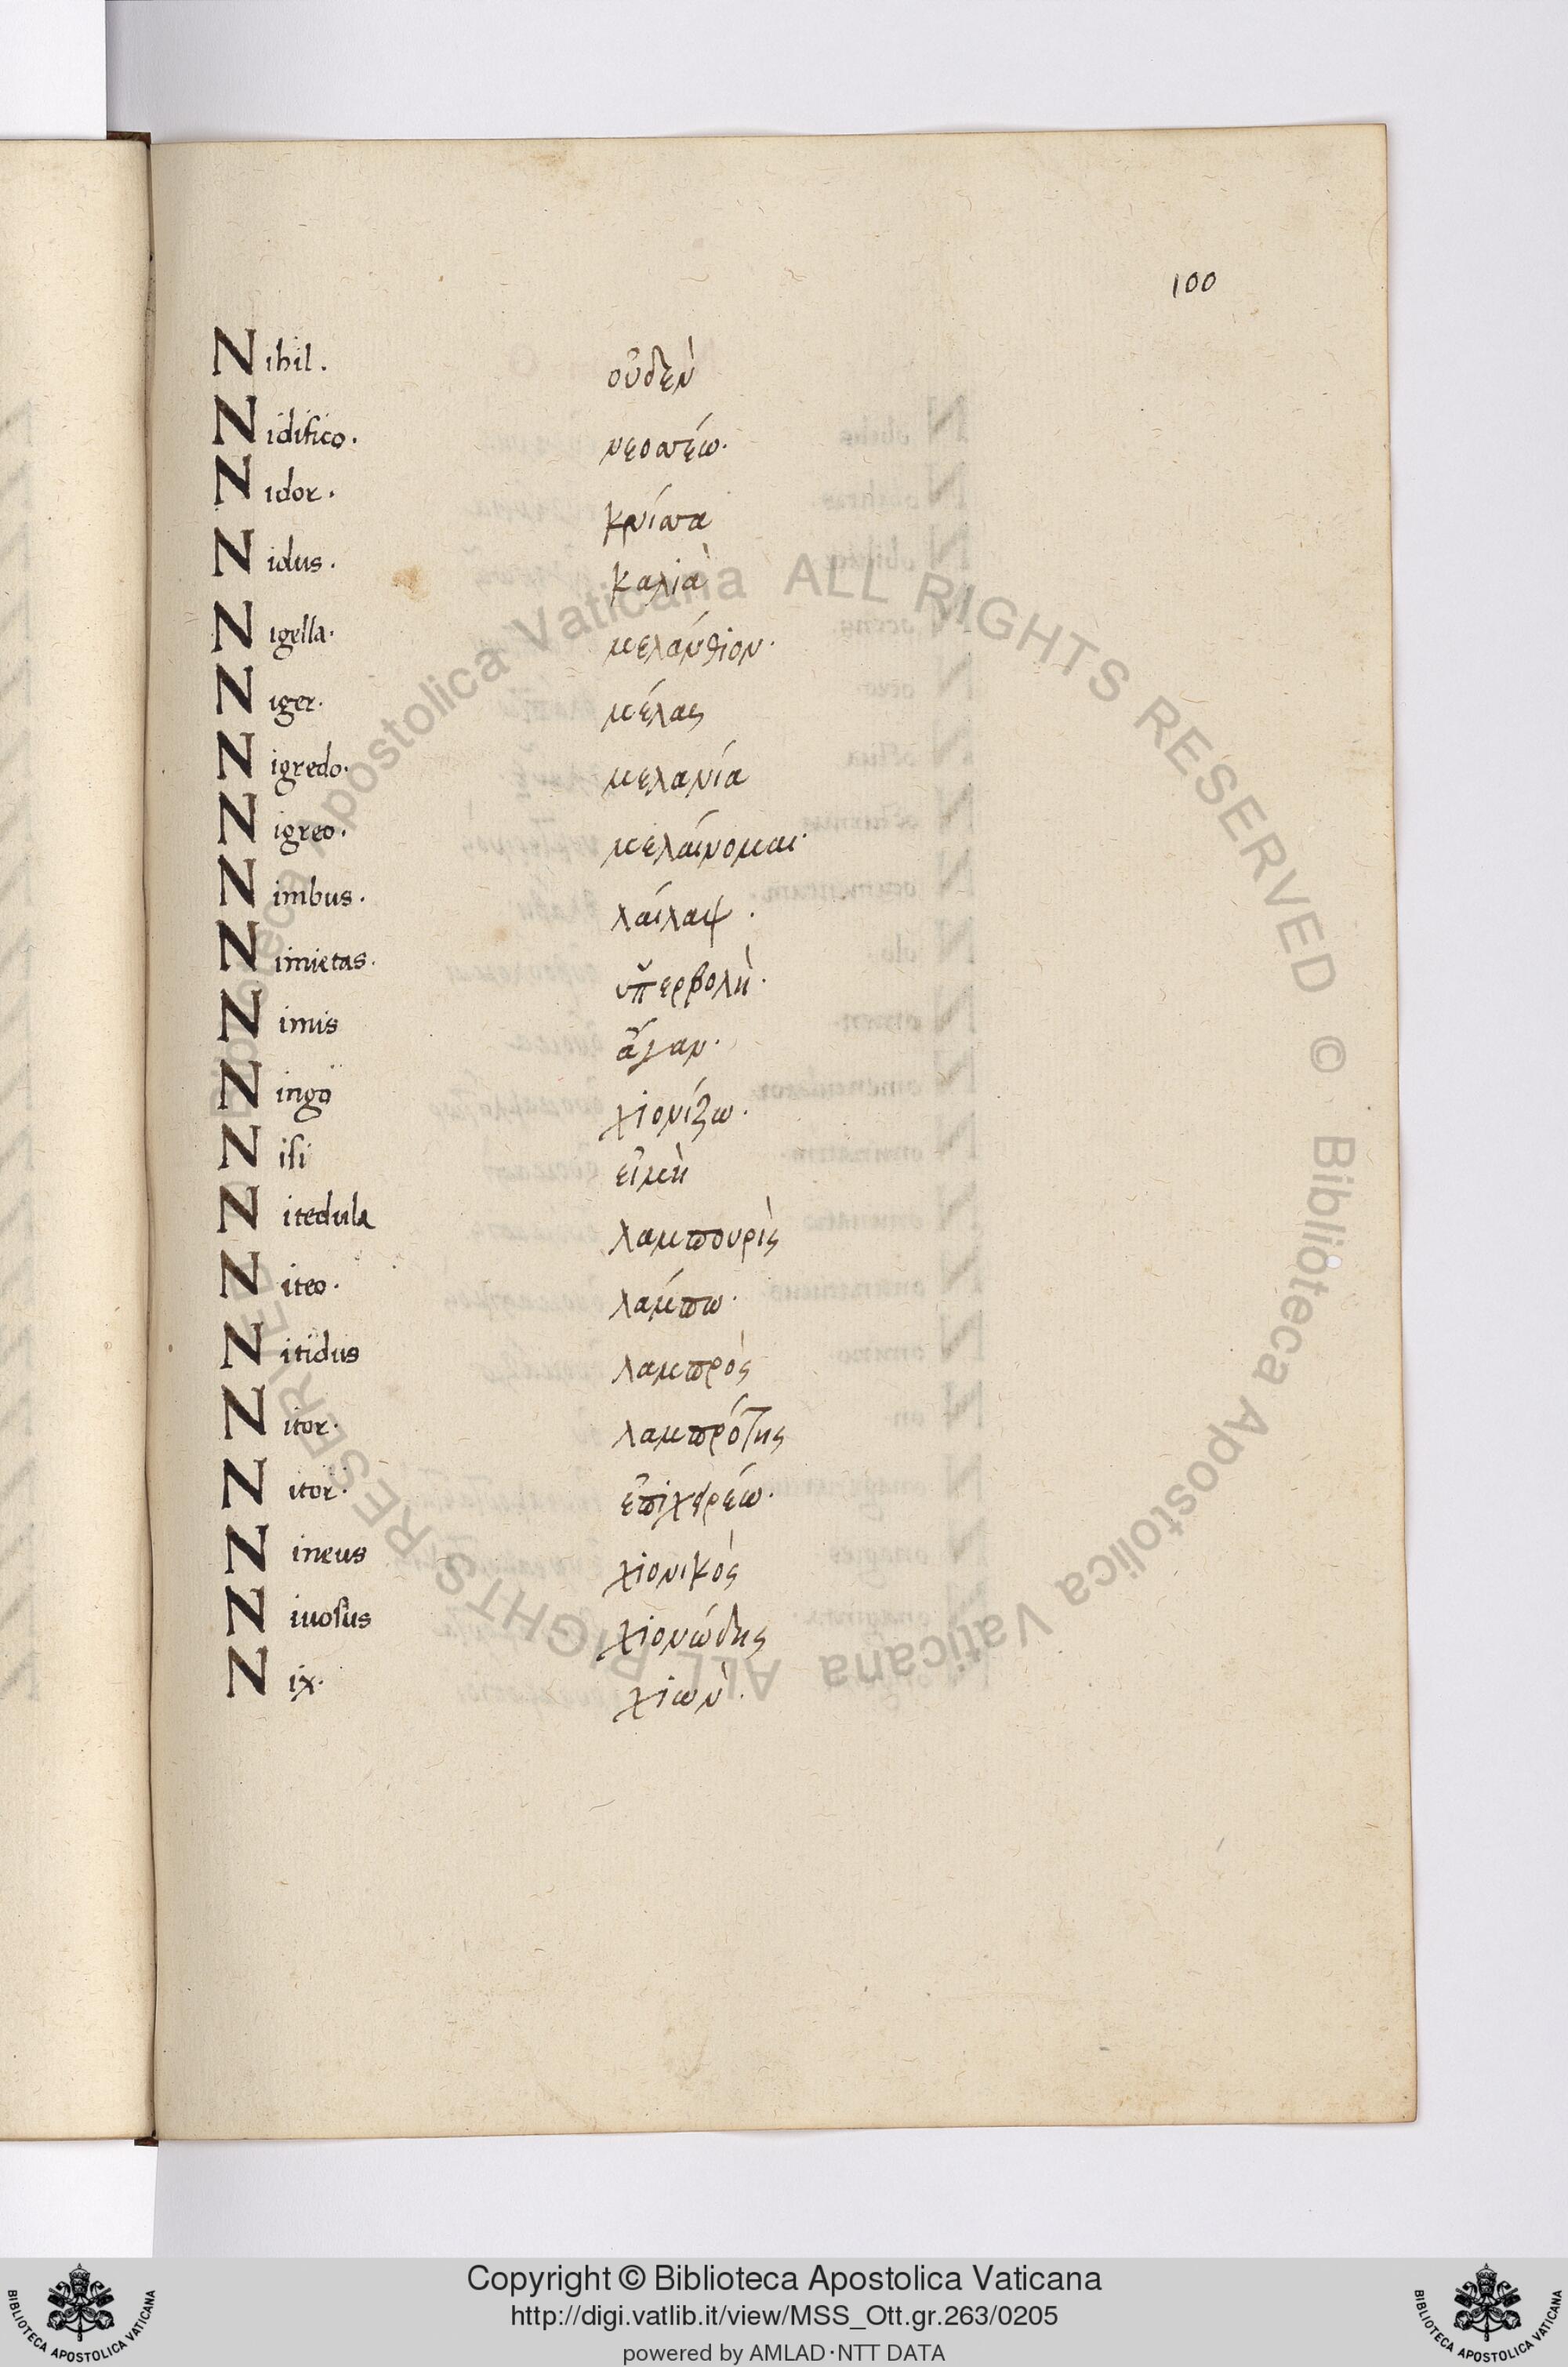 100
Nihil. οὐδὲν
Nidifico. νεοσσέω.
Nidor. κνίσσα
Nidus. καλιὰ
Nigella. μελάνθιον.
Niger. μέλας
Nigredo. μελανία
Nigreo. μελαίνομαι.
Nimbus. λαίλαψ.
Nimietas. ὑπερβολὴ.
Nimis ἄγαν.
Ningo χιονίζω.
Nisi εἰμὴ
Nitedula λαμπουρὶς
Niteo. λάμπω.
Nitidus λαμπρὸς
Nitor. λαμπρότης
Nitor. ἐπιχειρέω.
Nineus χιονικὸς
Niuosus χιονώδης
Nix. χιὼν.
Biblioteca Apostolica Vaticana ALL RIGHTS RESERVED ©
Copyright © Biblioteca Apostolica Vaticana
http://digi.vatlib.it/view/MSS_Ott.gr.263/0205
powered by AMLAD·NTT DATA
BIBLIOTECA APOSTOLICA VATICANA
BIBLIOTECA APOSTOLICA VATICANA